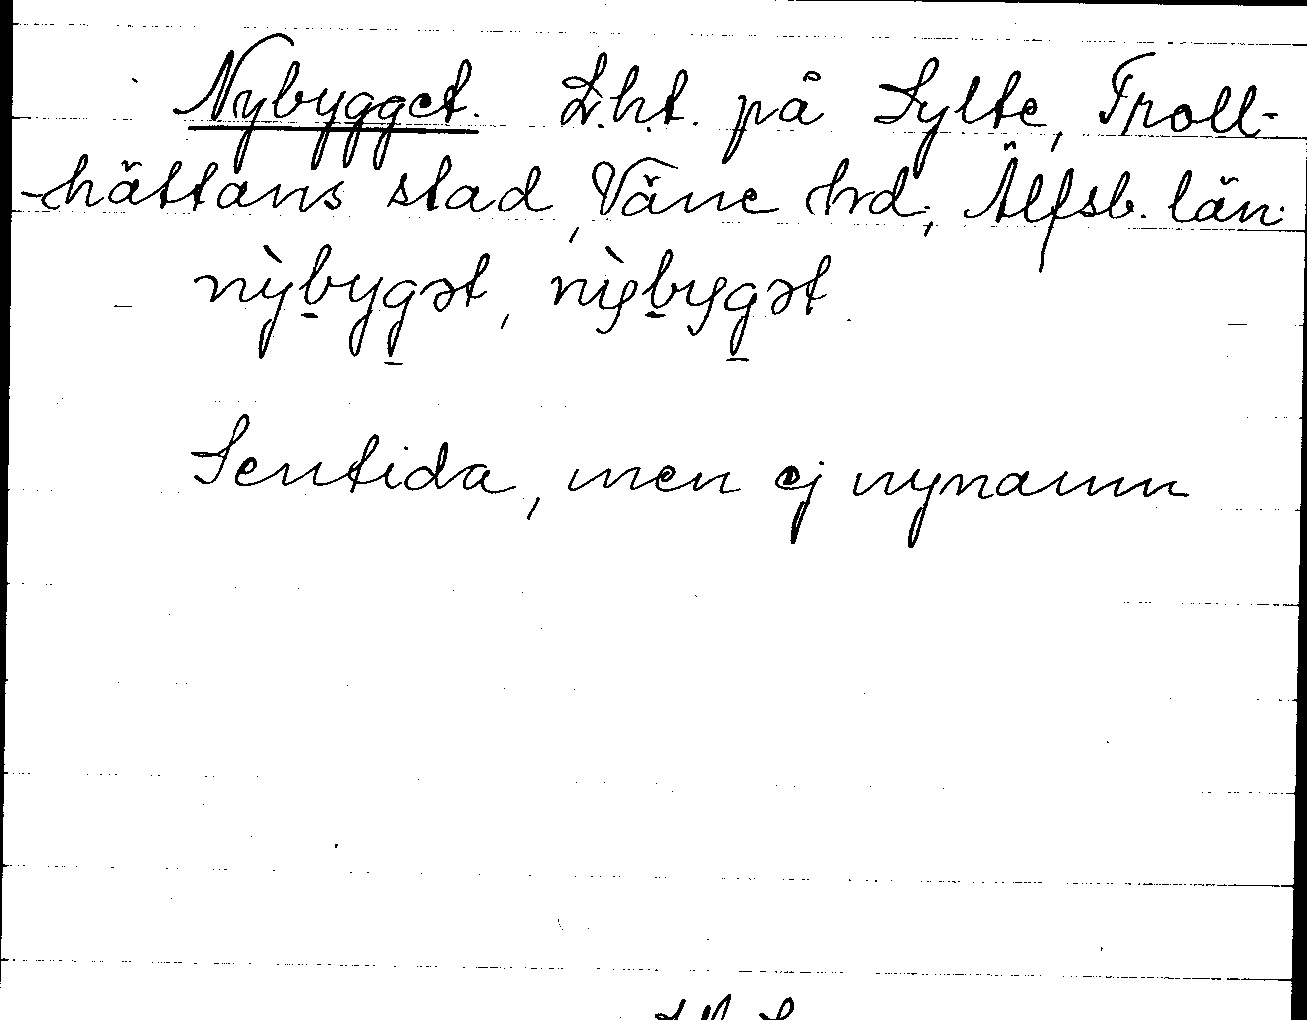 Nybygget. L.h.t. på Sylte, Troll-
hättans stad, Väne hrd, Älfsb. län.
nỳbygət, nỳbygət.
Sentida, men ej nynamn